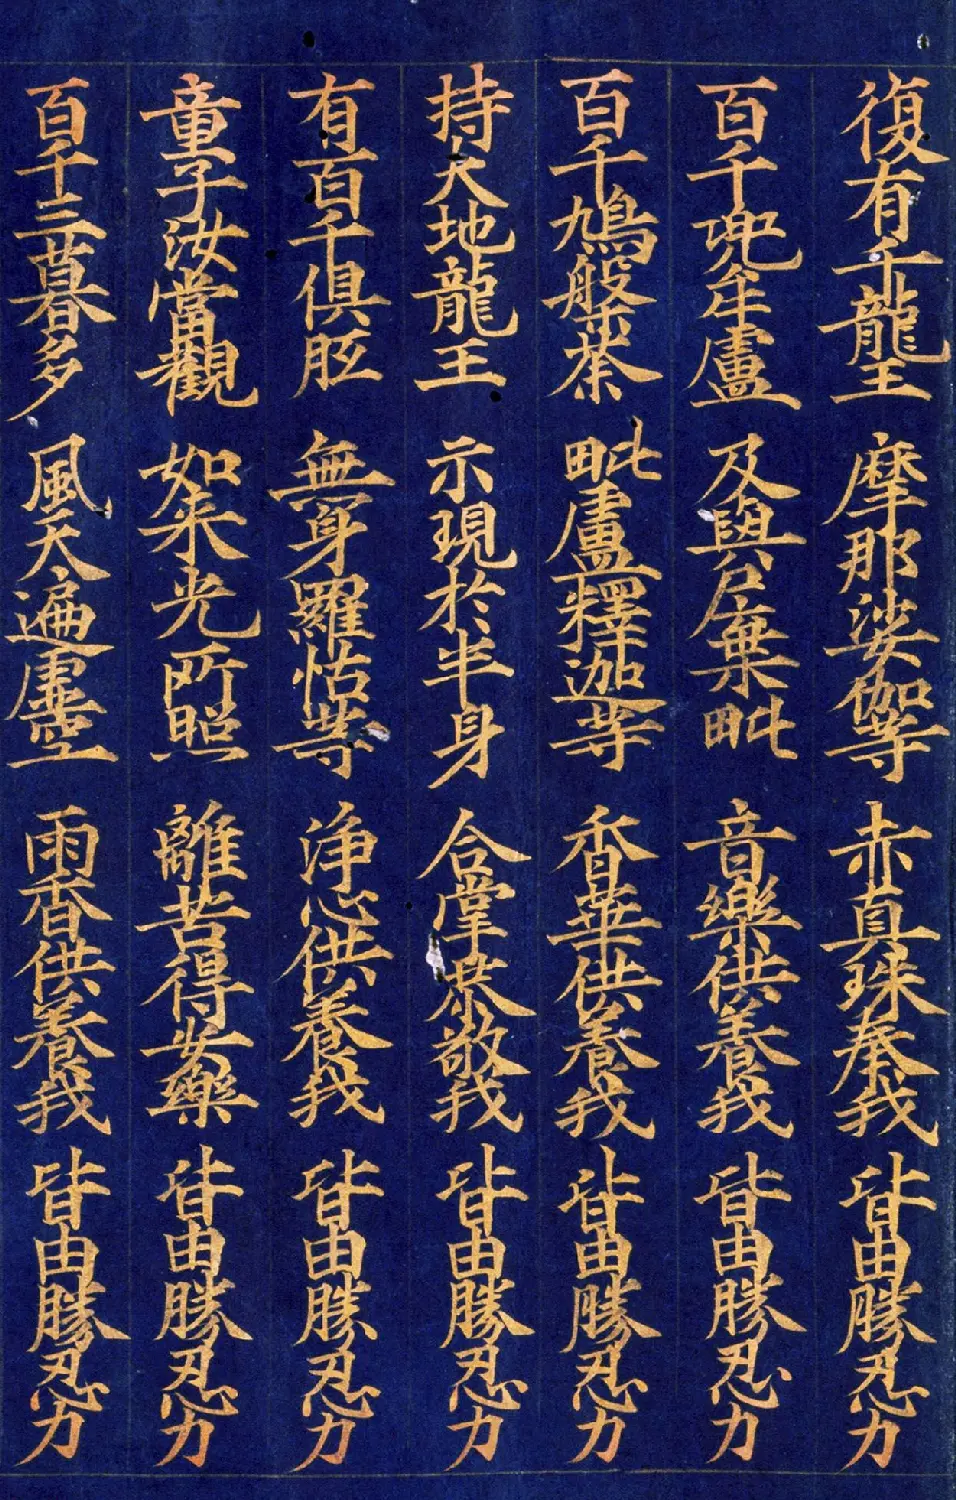 復有千龍王 摩那娑伽等 赤真珠奉我 皆由勝忍力
百千兜牟盧 及與尸棄毗 音樂供養我 皆由勝忍力
百千鳩槃荼 毗盧釋迦等 香華供養我 皆由勝忍力
持大地龍王 示現於半身 合掌恭敬我 皆由勝忍力
有百千俱胝 無身羅怙等 淨心供養我 皆由勝忍力
童子汝當觀 如来光所照 離苦得安樂 皆由勝忍力
百千三暮多 風天遍虛空 雨香供養我 皆由勝忍力